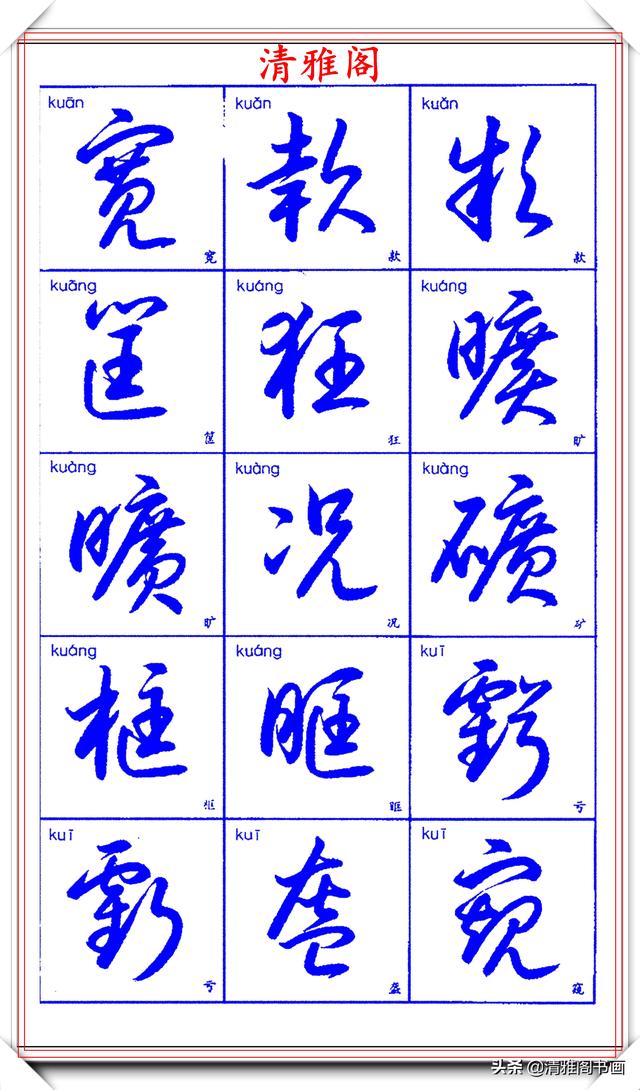 清雅阁
kuān kuǎn kuǎn
寬 款 款
宽 款 款
kuāng kuáng kuáng
筐 狂 曠
筐 狂 旷
kuàng kuàng kuàng
曠 况 礦
旷 况 矿
kuáng kuáng kuī
框 眶 虧
框 眶 亏
kuī kuī kuī
虧 盔 窺
亏 盔 窥
头条 @清雅阁书画